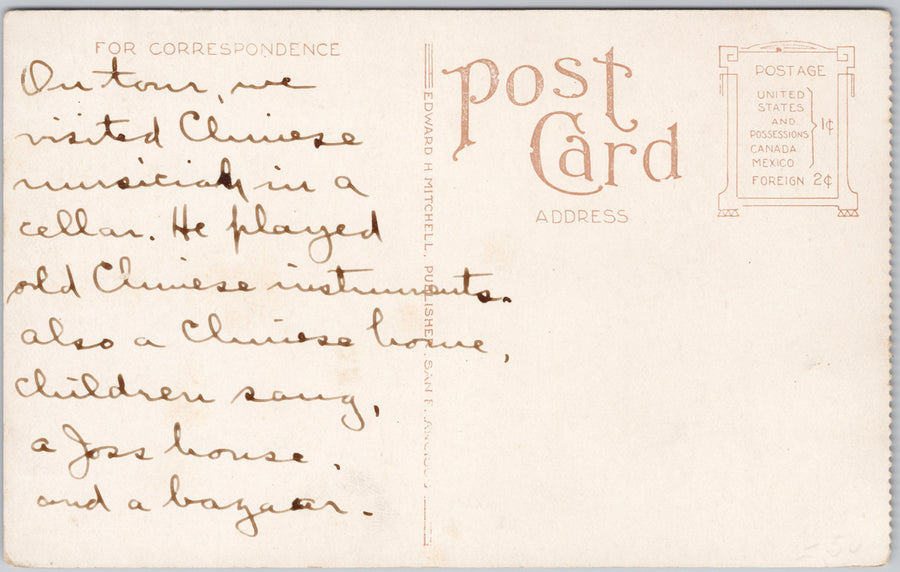 FOR CORRESPONDENCE
On tour, we
visited Chinese
musician in a
cellar. He played
old Chinese instruments.
also a Chinese home,
children sang,
a Joss house,
and a bazaar.
EDWARD H. MITCHELL, PUBLISHER, SAN FRANCISCO
Post
Card
ADDRESS
POSTAGE
UNITED
STATES
AND
POSSESSIONS
CANADA
MEXICO
1¢
FOREIGN 2¢